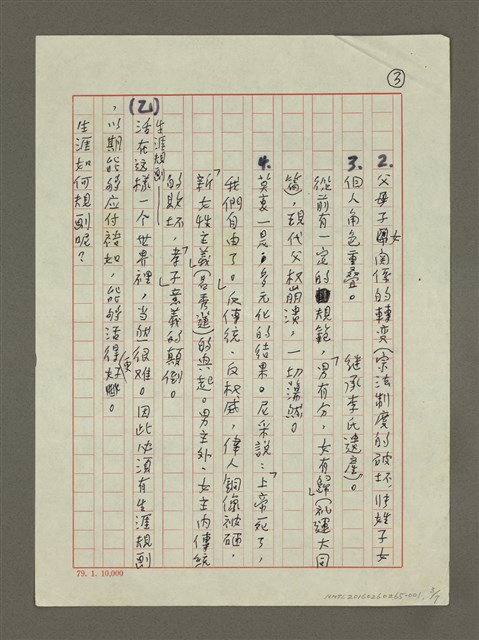 ③
2. 父母子女關係的轉变(宗法制度的破坏,外姓子女
繼承李氏遺產)。
3. 個人角色重疊。
從前有一定的規範,「男有分,女有歸」(礼運大同
篇),現代父权崩潰,一切蕩然。
4. 莫衷一是,多元化的結果。尼采説:「上帝死了,
我們自由了。」反傳統、反权威,偉人銅像被砸,
「新女性主義」(呂秀蓮)的興起。男主外、女主内傳統
的敗坏,「孝子」意義的顛倒。
(乙) 生涯規劃——
活在这樣一个世界裡,当然很难。因此必須有生涯規劃
,以期能夠应付裕如,能夠活得更好。
生涯如何規劃呢?
79. 1. 10,000
NMTL20160260265-001, 3/7